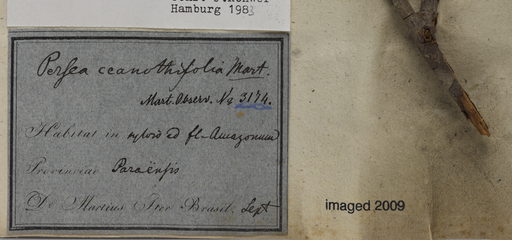 Hamburg 1983
Persea ceanothifolia Mart.
Mart. Observ. No 3174.
Habitat in sylvis ad fl. Amazonum
Provinciae Paraënsis
De Martius Iter Brasil. Sept
imaged 2009